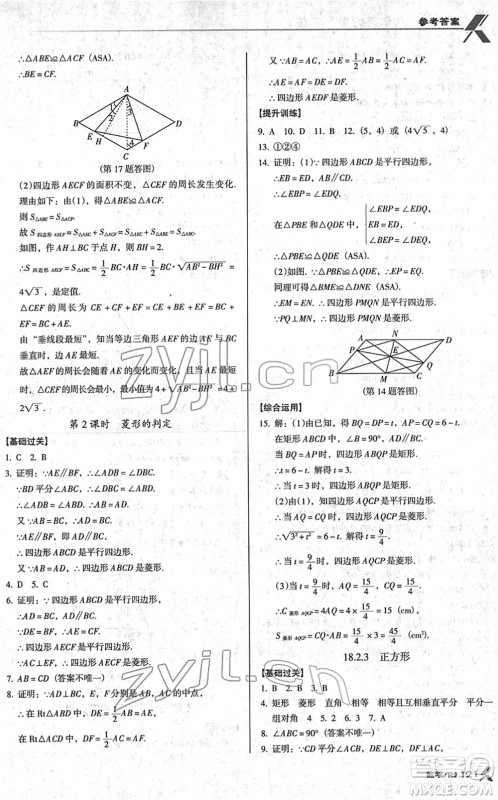 参考答案
∴△ABE≌△ACF（ASA）.
∴BE = CF.
A
B
E
H
C
F
D
1
2
3
4
（第 17 题答图）
（2）四边形 AECF 的面积不变，△CEF 的周长发生变化.
理由如下：由（1），得△ABE≌△ACF，
则 S△ABE = S△ACF.
故 S四边形 AECF = S△AEC + S△ACF = S△AEC + S△ABE = S△ABC.
如图，作 AH⊥BC 于点 H，则 BH = 2.
∴S四边形 AECF = S△ABC = 1/2 BC·AH = 1/2 BC·√(AB² − BH²) =
4√3，是定值.
△CEF 的周长为 CE + CF + EF = CE + BE + EF = BC +
EF = BC + AE.
由“垂线段最短”，知当等边三角形 AEF 的边 AE 与 BC
垂直时，边 AE 最短.
故△AEF 的周长会随着 AE 的变化而变化，且当 AE 最短
时，△CEF 的周长会最小，最小值为 4 + √(AB² − BH²) = 4 +
2√3.
第 2 课时　菱形的判定
【基础过关】
1. C　2. B
3. 证明：∵AE∥BF，∴∠ADB = ∠DBC.
∵BD 平分∠ABC，∴∠DBC = ∠ABD.
∴∠ADB = ∠ABD. ∴AB = AD.
又∵AB = BC，∴AD = BC.
∵AE∥BF，即 AD∥BC，
∴四边形 ABCD 是平行四边形.
又∵AB = BC，∴四边形 ABCD 是菱形.
4. D　5. C
6. 证明：∵四边形 ABCD 是平行四边形，
∴AD = BC，AD∥BC.
又∵DE = BF，∴AE = CF.
∵AE∥CF，
∴四边形 AECF 是平行四边形.
∵AC⊥EF，∴四边形 AECF 是菱形.
7. AB = CD（答案不唯一）
8. 证明：∵AD⊥BC，E，F 分别是 AB，AC 的中点，
∴在 Rt△ABD 中，DE = 1/2 AB = AE，
在 Rt△ACD 中，DF = 1/2 AC = AF.
又∵AB = AC，∴AE = 1/2 AB = 1/2 AC = AF.
∴AE = AF = DE = DF.
∴四边形 AEDF 是菱形.
【提升训练】
9. A　10. D　11. B　12.（5，4）或（4√5，4）
13. ①②④
14. 证明：（1）∵四边形 ABCD 是平行四边形，
∴EB = ED，AB∥CD.
∴∠EBP = ∠EDQ.
在△PBE 和△QDE 中，{ ∠EBP = ∠EDQ，
EB = ED，
∠BEP = ∠DEQ，
∴△PBE≌△QDE（ASA）.
（2）如图. ∵△PBE≌△QDE，∴EP = EQ.
同理可得△BME≌△DNE（ASA），
∴EM = EN. ∴四边形 PMQN 是平行四边形.
∵PQ⊥MN，∴四边形 PMQN 是菱形.
A
N
D
P
E
Q
B
M
C
（第 14 题答图）
【综合运用】
15. 解：（1）由已知，得 BQ = DP = t，AP = CQ = 6 − t.
在矩形 ABCD 中，∠B = 90°，AD∥BC，
当 BQ = AP 时，四边形 ABQP 为矩形，
∴t = 6 − t. 解得 t = 3.
故当 t = 3 时，四边形 ABQP 为矩形.
（2）由（1），知四边形 AQCP 为平行四边形，
∴当 AQ = CQ 时，四边形 AQCP 为菱形.
∴√(3² + t²) = 6 − t. 解得 t = 9/4.
故当 t = 9/4 时，四边形 AQCP 为菱形.
（3）当 t = 9/4 时，AQ = 15/4，CQ = 15/4，
∴C菱形 AQCP = 4AQ = 4 × 15/4 = 15（cm），
S菱形 AQCP = CQ·AB = 15/4 × 3 = 45/4（cm²）.
18.2.3　正方形
【基础过关】
1. B　2. B　3. B
4. 矩形　菱形　直角　相等　相等且互相垂直平分　平分一
组对角　4　5. 2　6. 3　7. C
8. ∠ABC = 90°（答案不唯一）
9. 证明：∵CD 平分∠ACB，DE⊥BC，DF⊥AC，
zyjl.cn
zyjl.cn